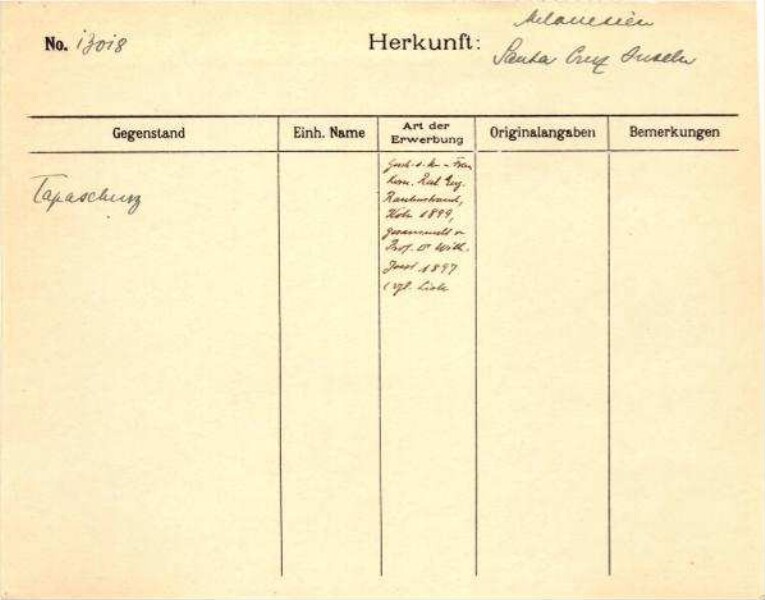 No. 13018
Herkunft:
Melanesien
Santa Cruz Inseln
Gegenstand
Einh. Name
Art der
Erwerbung
Originalangaben
Bemerkungen
Tapaschurz
Gesch. d. H. - Frau
Kom. Rat Eug.
Rautenstrauch,
Köln 1899,
gesammelt v.
Prof. Dr Wilh.
Joest 1897
(vgl. Liste